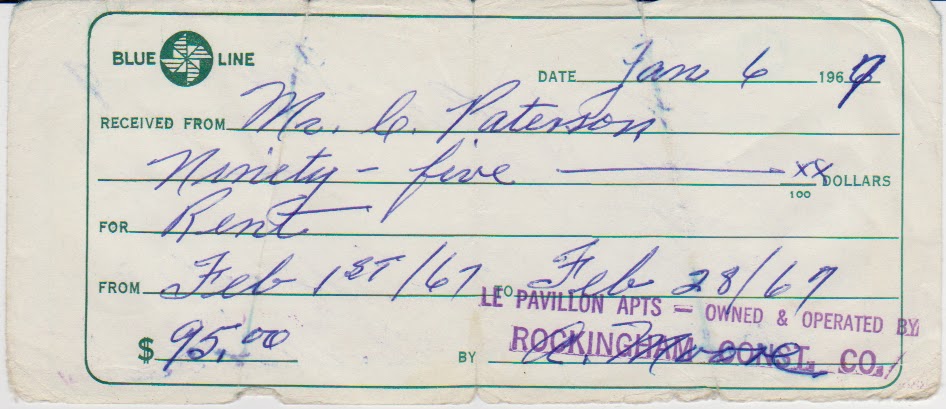 BLUE LINE
DATE Jan 6 1967
RECEIVED FROM Mr. C. Paterson
Ninety - five xx/100 DOLLARS
FOR Rent
FROM Feb 1ST/67 TO Feb 28/67
LE PAVILLON APTS — OWNED & OPERATED BY
$ 95.00 BY A. Moore
ROCKINGHAM CONST. CO.